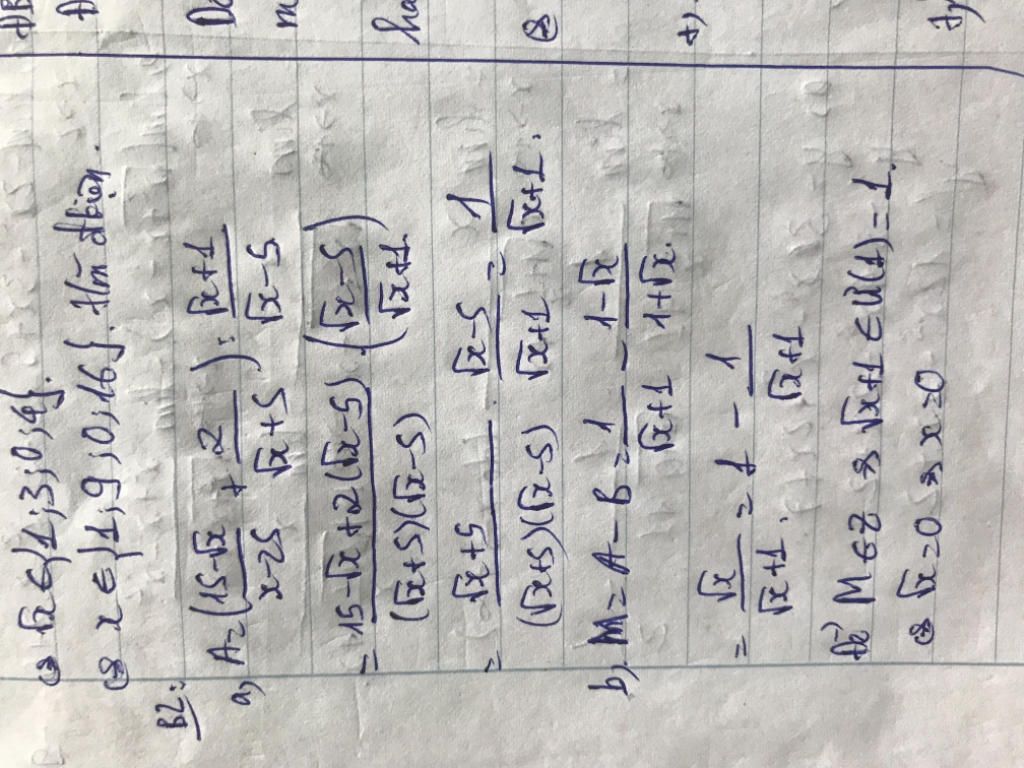 ⇔ √x ∈ {1; 3; 0; 4}.
⇔ x ∈ {1; 9; 0; 16}. t/m đkiện.
B2:
a, A = ((15-√x)/(x-25) + 2/(√x+5)) : (√x+1)/(√x-5)
= (15-√x+2(√x-5))/((√x+5)(√x-5)) . ((√x-5)/(√x+1))
= (√x+5)/((√x+5)(√x-5)) . (√x-5)/(√x+1) = 1/(√x+1).
b, M = A - B = 1/(√x+1) - (1-√x)/(1+√x)
= √x/(√x+1) = 1 - 1/(√x+1)
Để M ∈ Z ⇔ √x+1 ∈ Ư(1) = 1.
⇔ √x = 0 ⇔ x = 0